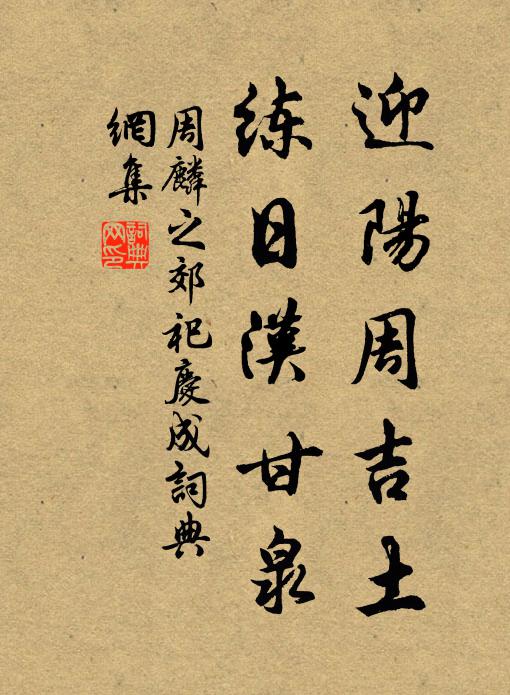 迎陽周吉土
練日漢甘泉
周麟之郊祀慶成詞典
網集
詞典
网印